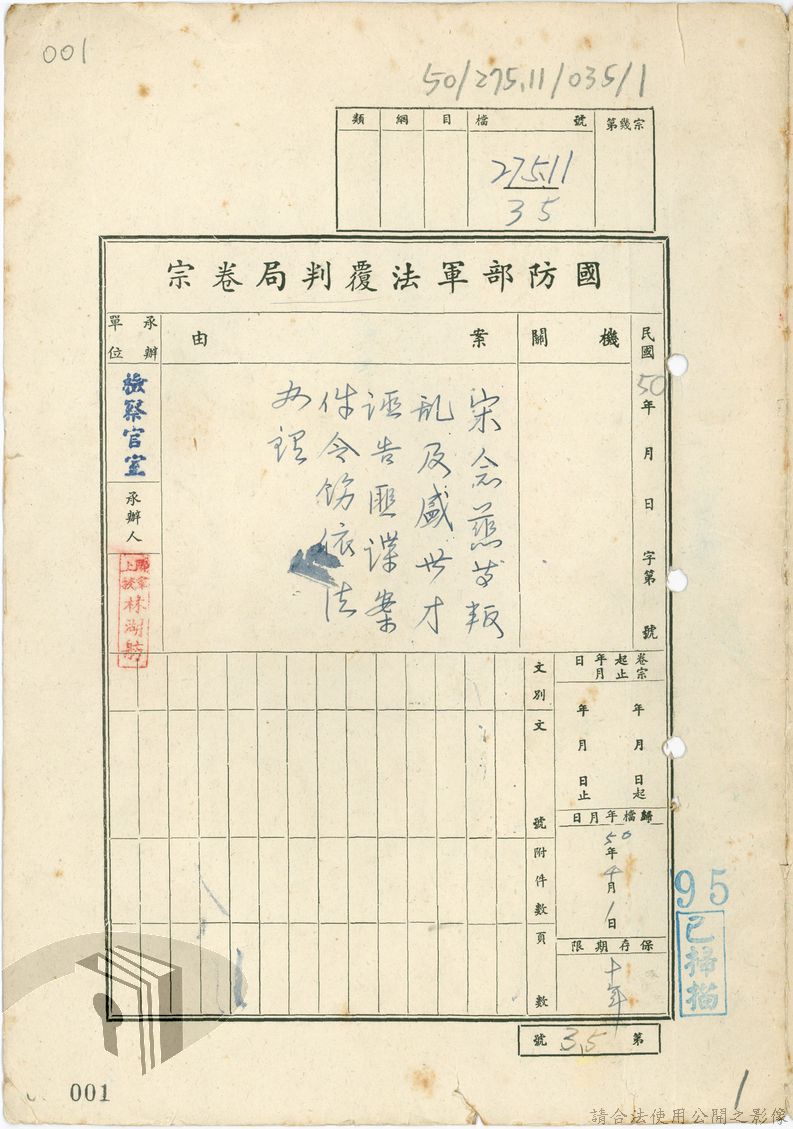 001
50/275.11/035/1
類 綱 目 檔號 第幾宗
275.11
35
國防部軍法覆判局卷宗
民國50年 月 日 字第 號
機關
案由
宋念慈等叛
乱及盛世才
誣告匪諜案
件令飭依法
办理
承辦單位
檢察官室
承辦人
林湖舫
卷宗起止年月日
年 月 日起
年 月 日止
歸檔年月日
50年4月1日
保存期限
十年
文別
文號
附件數
頁數
第35號
95
已掃描
001
1
請合法使用公開之影像